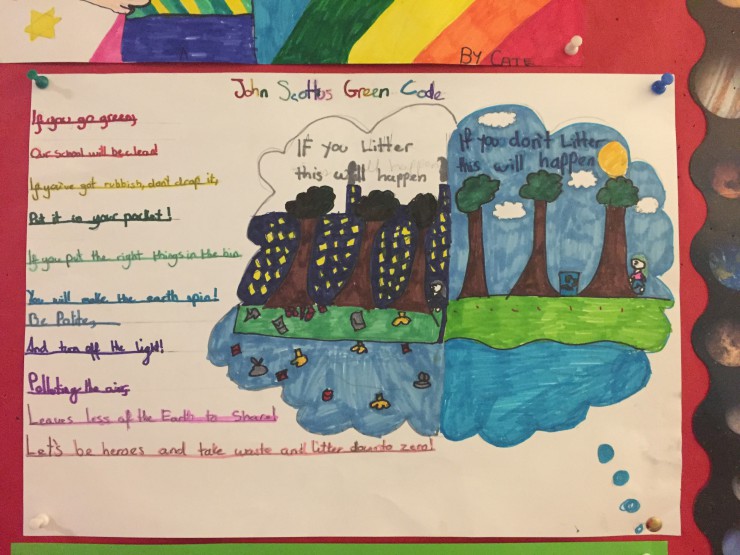 BY CATE
John Scottus Green Code
If you go green,
Our school will be clean!
If you've got rubbish, don't drop it,
Put it in your pocket!
If you put the right things in the bin
You will make the earth spin!
Be Polite,
And turn off the light!
Polluting the air,
Leaves less of the Earth to Share!
Let's be heroes and take waste and litter down to zero!
If you Litter
this will happen
If you don't Litter
this will happen